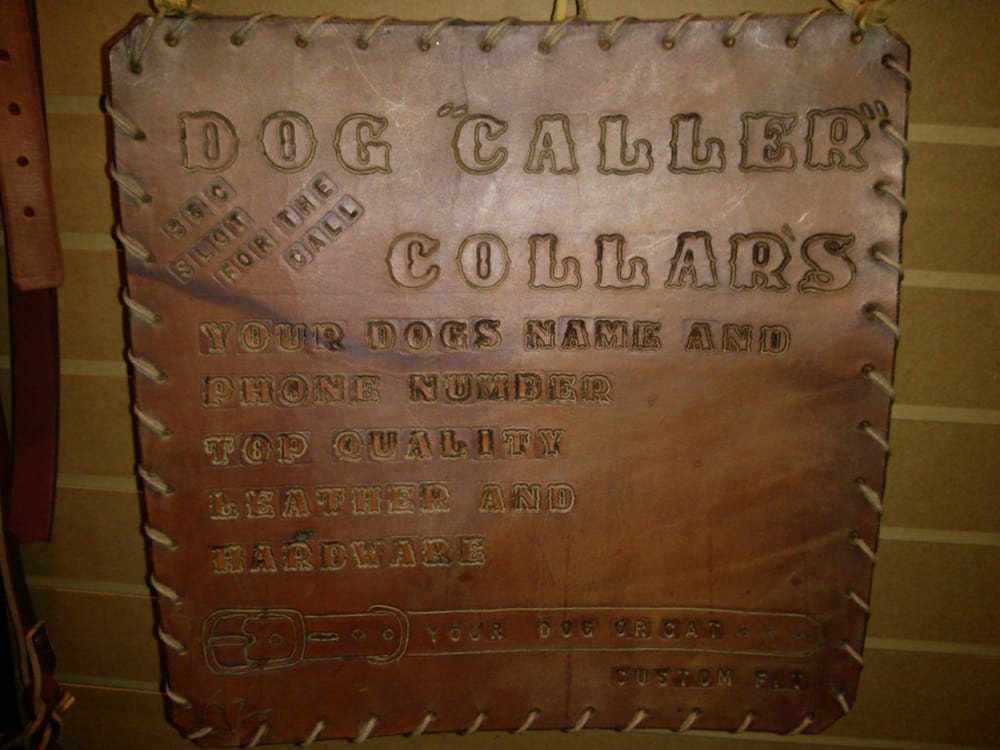 DOG "CALLER"
35¢
SLOT
FOR THE
CALL
COLLAR'S
YOUR DOGS NAME AND
PHONE NUMBER
TOP QUALITY
LEATHER AND
HARDWARE
YOUR DOG OR CAT
CUSTOM